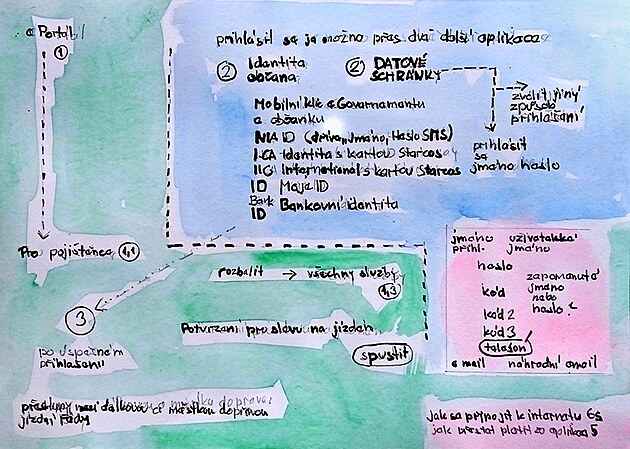 e Portál
1
přihlásit se je možno přes dvě další aplikace
2 Identita
občana
2 DATOVÉ
SCHRÁNKY
zvolit jiný
způsob
přihlášání
Mobilní klíč eGovernmentu
e občanka
NIA ID (dříve "jméno, Heslo SMS)
I.CA Identita s kartou Starcos
IIG International s kartou Starcos
ID MojeID
Bank Bankovní identita
ID
přihlásit
se
jméno heslo
Pro pojištěnce 1,1
rozbalit → všechny služby
1,3
3
po úspěšném
přihlášení
Potvrzení pro slevu na jízden.
spustit
přestupy mezi dálkovou a městskou dopravou
jízdní řády
jméno uživatelské
přihl. jméno
heslo
zapomenuté
jméno
nebo
heslo?
kód
kód 2
kód 3
telefon
e mail náhradní email
jak se připojit k internetu 6s
jak přestat platit za aplikaci 5